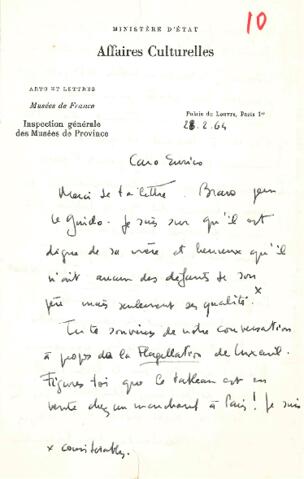 10
MINISTÈRE D'ÉTAT
Affaires Culturelles
ARTS ET LETTRES
Musées de France
Inspection générale
des Musées de Province
Palais du Louvre, Paris 1er
28.2.64
Caro Enrico
Merci de ta lettre. Bravo pour
le Guido. Je suis sur qu'il est
digne de sa mère et heureux qu'il
n'ait aucun des défauts de son
père mais seulement ses qualités. x
Tu te souviens de notre conversation
à propos de la Flagellation de Luxeuil.
Figures toi que le tableau est en
vente chez un marchand à Paris ! Je suis
x considérables.